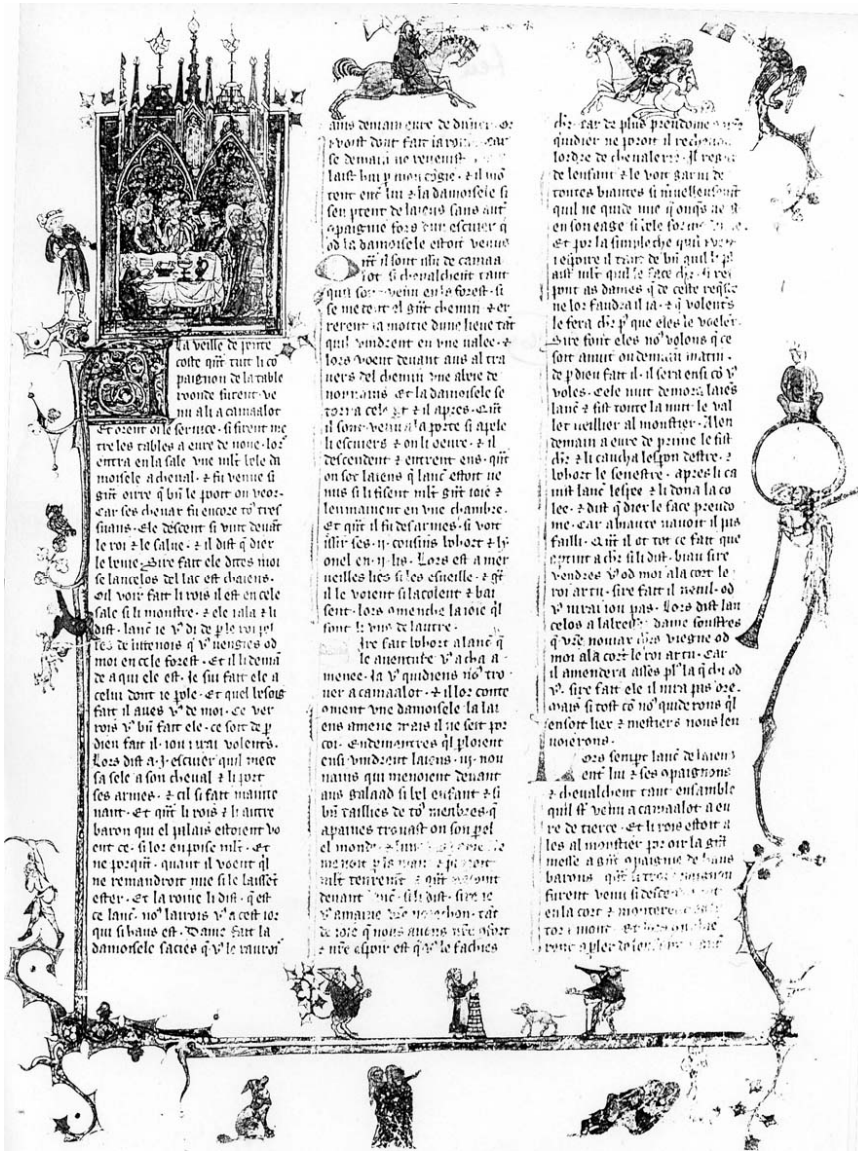 la veille de pente
coste qñt tuit li cō
paignon de la table
roonde furent ve
nu a li a camaalot
Et orent oi le seruice · si firent me
tre les tables a eure de none · lors
entra en la sale vne mlt bele da
moisele a cheual · ⁊ fu venue si
gñt oirre q̄ bñ le pooit on veoir ·
Car ses cheuax fu encore toz tres
suans · Ele descent si vint deuāt
le roi ⁊ le salue · ⁊ il dist q̄ diex
le beneie · Sire fait ele dites moi
se lancelos del lac est chaiens ·
Oil voir fait li rois il est en cele
sale si li monstre · ⁊ ele i ala ⁊ li
dist · lanc̄ ie vꝰ di de p̄ le roi pel
les q̄ vꝰ vengies od
moi en cele forest · Et il li demā
de a qui ele est · Ie sui fait ele a
celui dont ie pole · Et quel besoig
fait il aues vꝰ de moi · Ce ver
rois vꝰ bñ fait ele · ce soit de p̄
dieu fait il · iou i irai volentꝰs ·
Lors dist a · j · escuier quil mece
sa sele a son cheual ⁊ li port
ses armes · ⁊ cil si fait mainte
nant · Et qñt li rois ⁊ li autre
baron qui el palais estoient vo
ent ce · si lor en poise mlt · Et
ne porqñt · quant il voent q̄l
ne remandroit mie si le laissēt
ester · Et la roine li dist · q̄ est
ce lanc̄ · noꝰ lairois vꝰ a cest ior
qui si haus est · Dame fait la
damoisele sacies q̄ vꝰ le raurois
ains demain eure de disner · Or
i voist dont fait la roine · Car
se demain ne reuenist
laist hui p̄ mon cōgie · ⁊ il mō
tent enc̄ lui ⁊ la damoisele si
sen p̄tent de laiens sans aut
cpaignie fors dun escuier q̄
od la damoisele estoit venus
Qñt il sont issu de camaa
lot si cheualchent tant
quil sont venu en la forest · si
se metent el gñt chemin · ⁊ er
rerent la moitie dune lieue tāt
quil vindrent en vne valee · ⁊
lors voent deuant aus al tra
uers del chemin vne abeie de
nonnains · Et la damoisele se
torna cele pt ⁊ il apres · Qñt
il sont venu a la porte si apele
li escuiers ⁊ on li oeure · ⁊ il
descendent ⁊ entrent ens · qñt
on sot laiens q̄ lanc̄ estoit ve
nus si li fisent mlt gñt ioie ⁊
lenmainent en vne chambre ·
Et qñt il fu desarmes · si voit
issir ses · ij · cousins bohort ⁊ ly
onel en · ij · lis · Lors est a mer
ueilles lies si les esueille · ⁊ qñt
il le voient si lacolent ⁊ bai
sent · lors cmenche la ioie q̄l
font li vns de lautre ·
Sire fait bohort a lanc̄ q̄
le auenture vꝰ a cha a
menee · Ia vꝰ quidiens noꝰ tro
uer a camaalot · ⁊ il lor conte
cment vne damoisele la lai
ens amene mais il ne seit por
coi · Endementres q̄l ploient
ensi vindrent laiens · iij · non
nains qui menoient deuant
aus galaad si bel enfant ⁊ si
bñ taillies de toꝰ menbres · q̄
apaines trouast on son pel
el monde ·
menoit p̄ la main
mlt tenrement ⁊ qñt
deuant lanc̄ · si li dist · sire ie
vꝰ amaine vr̄e · tāt
de ioie q̄ nous auons nr̄e cfort
⁊ nr̄e espoir est q̄ vꝰ le faches
chr̄ · car de plus preudome
quidier ne poroit il rechoiure
lordre de cheualerie · Il regarde
de lenfant ⁊ le voit garni de
toutes biautes si m̄uellensemt
quil ne quide mie q̄ onq̄s ne
en son eage si bele forme
Et por la simpleche quil voit
espoire il tant de bñ quil li pl
aist mlt quil le face chr̄ · si res
pont as dames q̄ de ceste req̄ste
ne lor faudra il ia · ⁊ q̄ volentꝰs
le fera chr̄ pꝰ que eles le voelent ·
Sire font eles noꝰ volons q̄ ce
soit anuit ou demain matin ·
de p̄ dieu fait il · il sera ensi cō vꝰ
voles · Cele nuit demora laiēs
lanc̄ ⁊ fist toute la nuit le val
let veillier al monstier · A len
demain a eure de prime le fist
chr̄ ⁊ li caucha lesporn destre · ⁊
bohort le senestre · apres li ca
inst lanc̄ lespee ⁊ li dona la co
lee · ⁊ dist q̄ diex le face preudo
me · Car a biaute nauoit il pas
failli · Qñt il ot tot ce fait que
aptint a chr̄ si li dist · biau sire
vendres vꝰ od moi a la cort le
roi artu · sire fait il nenil · od
vꝰ nirai iou pas · Lors dist lan
celos a labeesse dame souffres
q̄ vr̄e nouiax chr̄s viegne od
moi a la cort le roi artu · Car
il amendera asses plꝰ la q̄ chi od
vꝰ · sire fait ele il nira pas ore ·
Mais si tost cō noꝰ quiderons q̄l
en soit liex ⁊ mestiers nous len
uoierons ·
Lors sempt lanc̄ de laiens
ent lui ⁊ ses cpaignons
⁊ cheualchent tant ensamble
quil sꝰt venu a camaalot a eu
re de tierce · Et li rois estoit a
les al monstier por oir la gñt
messe a gñt cpaignie de haus
barons · qñt li troi cpaignon
furent venu si descendent
en la cort ⁊ monterent